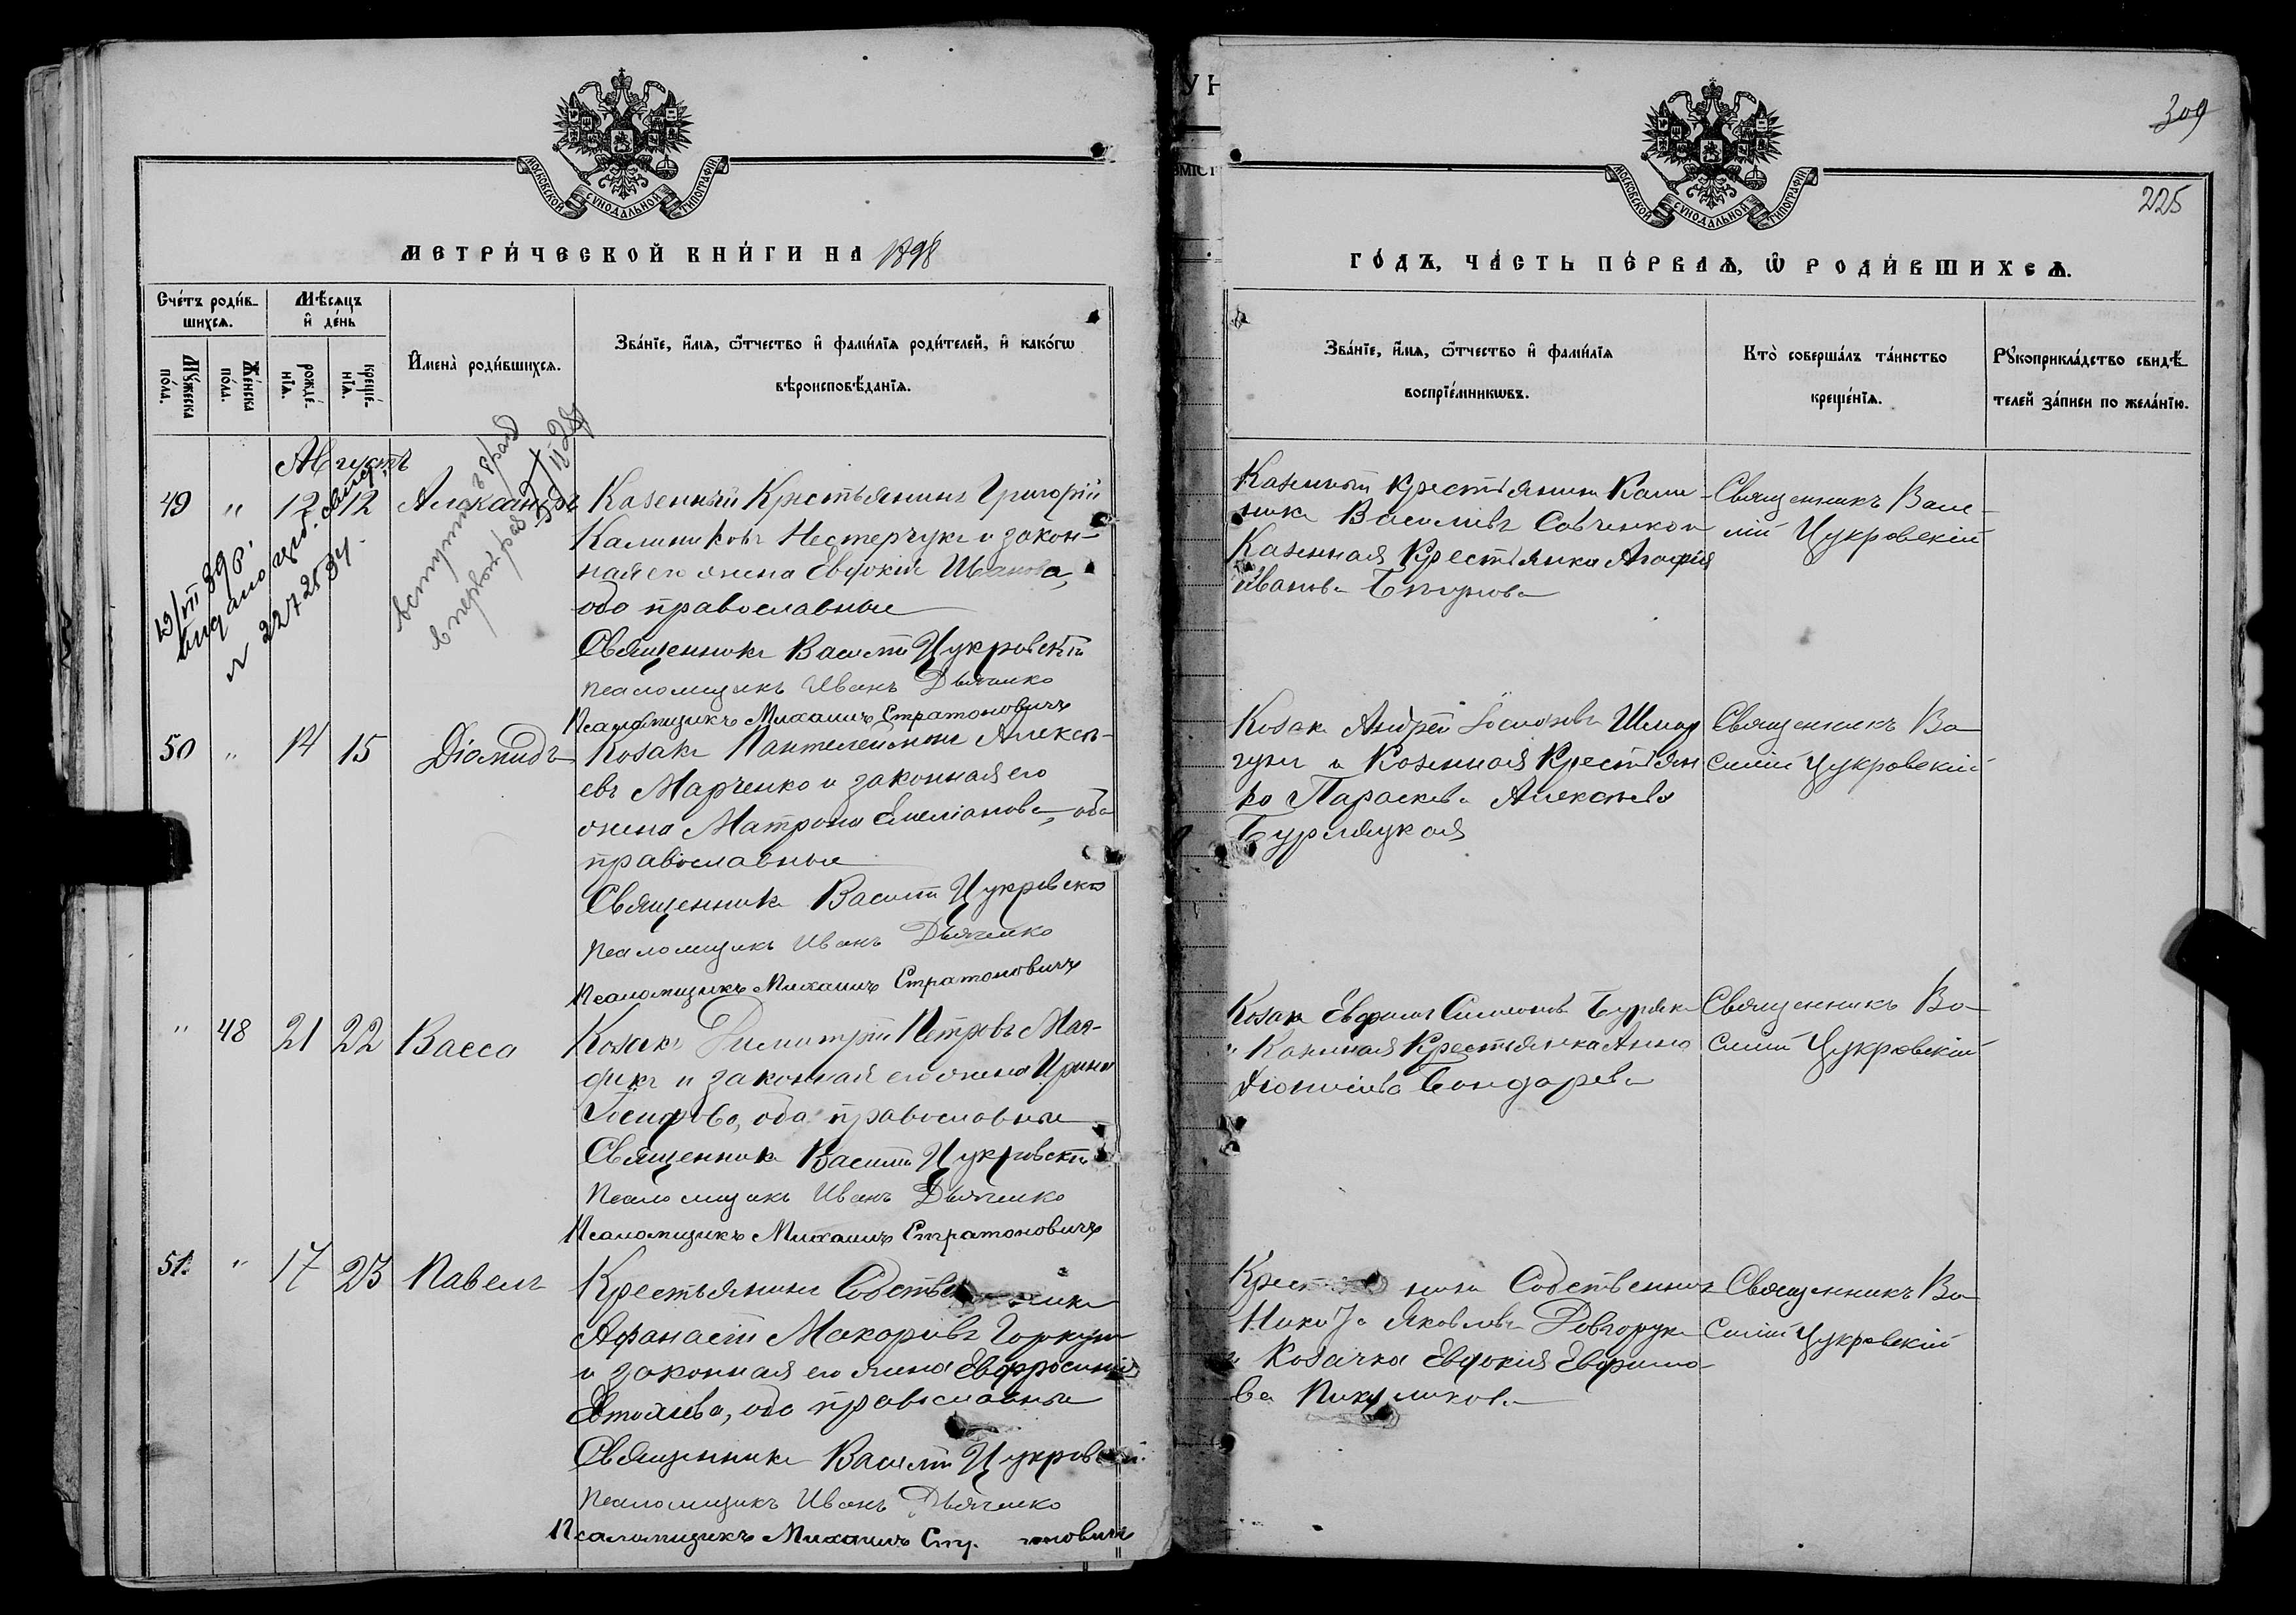 МОСКОВСКОЙ СѴНОДАЛЬНОЙ ТИПОГРАФІИ
МЕТРИ́ЧЕСКОЙ КНИ́ГИ НА 1898
Сче́тъ роди́в-
шихсѧ.
Мѣ́сѧцъ
и҆ де́нь
Мꙋ́жеска
по́ла.
Же́нска
по́ла.
рожде́-
нїѧ.
креще́-
нїѧ.
И҆мена̀ роди́вшихсѧ.
Зва́нїе, и҆́мѧ, ѻ҆́тчество и҆ фами́лїѧ роди́телей, и҆ како́гѡ
вѣроисповѣ́данїѧ.
Августъ
49 " 12 12 Александръ
Казенный Крестьянинъ Григорій
Калиниковъ Нестерчукъ и закон-
ная его жена Евдокія Иванова,
оба православные
Священникъ Василій Цукровскій
Псаломщикъ Иванъ Дьяченко
Псаломщикъ Михаилъ Стратоновичъ
видано
№ 227284
вступил в
50 " 14 15 Діомидъ
Козакъ Пантелеймонъ Алексѣ-
евъ Марченко и законная его
жена Матрона Емеліанова, оба
православные
Священникъ Василій Цукровскій
Псаломщикъ Иванъ Дьяченко
Псаломщикъ Михаилъ Стратоновичъ
" 48 21 22 Васса
Козакъ Димитрій Петровъ Мая-
и законная его жена Ирина
оба православные
Священникъ Василій Цукровскій
Псаломщикъ Иванъ Дьяченко
Псаломщикъ Михаилъ Стратоновичъ
51. " 17 23 Павелъ
Крестьянинъ Собстве никъ
Афанасій Макаріевъ
и законная его жена Евфросинія
Евтихіева, оба православные
Священникъ Василій Цукровскій
Псаломщикъ Иванъ Дьяченко
Псаломщикъ Михаилъ Ст новичъ
309
МОСКОВСКОЙ СѴНОДАЛЬНОЙ ТИПОГРАФІИ
225
ГО́ДЪ, ЧА́СТЬ ПЕ́РВАѦ, Ѡ҆ РОДИ́ВШИХСѦ.
Зва́нїе, и҆́мѧ, ѻ҆́тчество и҆ фами́лїѧ
воспрїе́мникѡвъ.
Кто̀ соверша́лъ та́инство
креще́нїѧ.
Рꙋкоприкла́дство свидѣ́-
телей за́писи по жела́нїю.
Казенный Крестьянинъ Кали-
никъ Василіевъ Савченко и
Казенная Крестьянка Агафія
Иванова
Священникъ Васи-
лій Цукровскій
Козакъ Андрей
и Казенная Крестьян
ка Параскева Алексѣева
Бурляцкая
Священникъ Ва
силій Цукровскій
Козакъ Евфимъ Симеоновъ Бурякъ
и Казенная Крестьянка Анна
Діонисіева Бондарева
Священникъ Ва-
силій Цукровскій
Крест нинъ Собственникъ
Никита Яковлевъ Довгорукъ
и Козачка Евдокія Евфимо-
ва Пикуликова
Священникъ Ва
силій Цукровскій